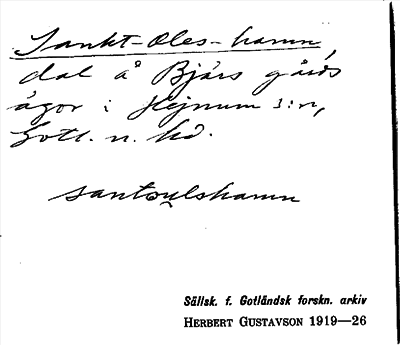 Sankt-Oles-hamn,
dal å Bjärs gårds
ägor i Hejnum s:n,
Gotl. n. hd.
santoulshamn
Sällsk. f. Gotländsk forskn. arkiv
HERBERT GUSTAVSON 1919—26